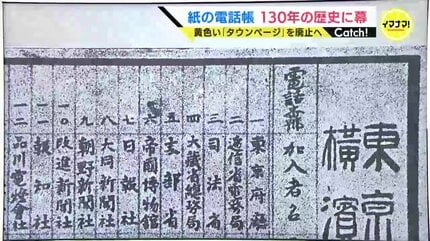 紙の電話帳 130年の歴史に幕
黄色い「タウンページ」を廃止へ
Catch!
イマナマ!
東京
橫濱
電話 加入者名
一 東京府
二 遞信省電務局
三 司法省
四 大藏省總務局
五 文部省
六 帝國博物館
七 日報社
八 大同新聞社
九 朝野新聞社
一〇 改進新聞社
一一 報知社
一二 品川電燈會